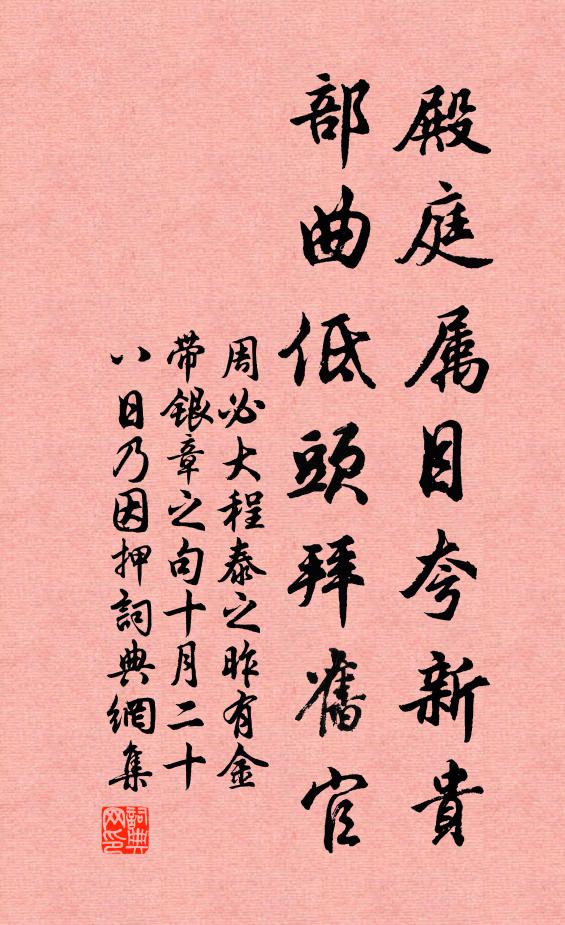 殿庭属目夸新貴
部曲低頭拜舊官
周必大程泰之昨有金
带銀章之句十月二十
八日乃因押詞典網集
詞典网印